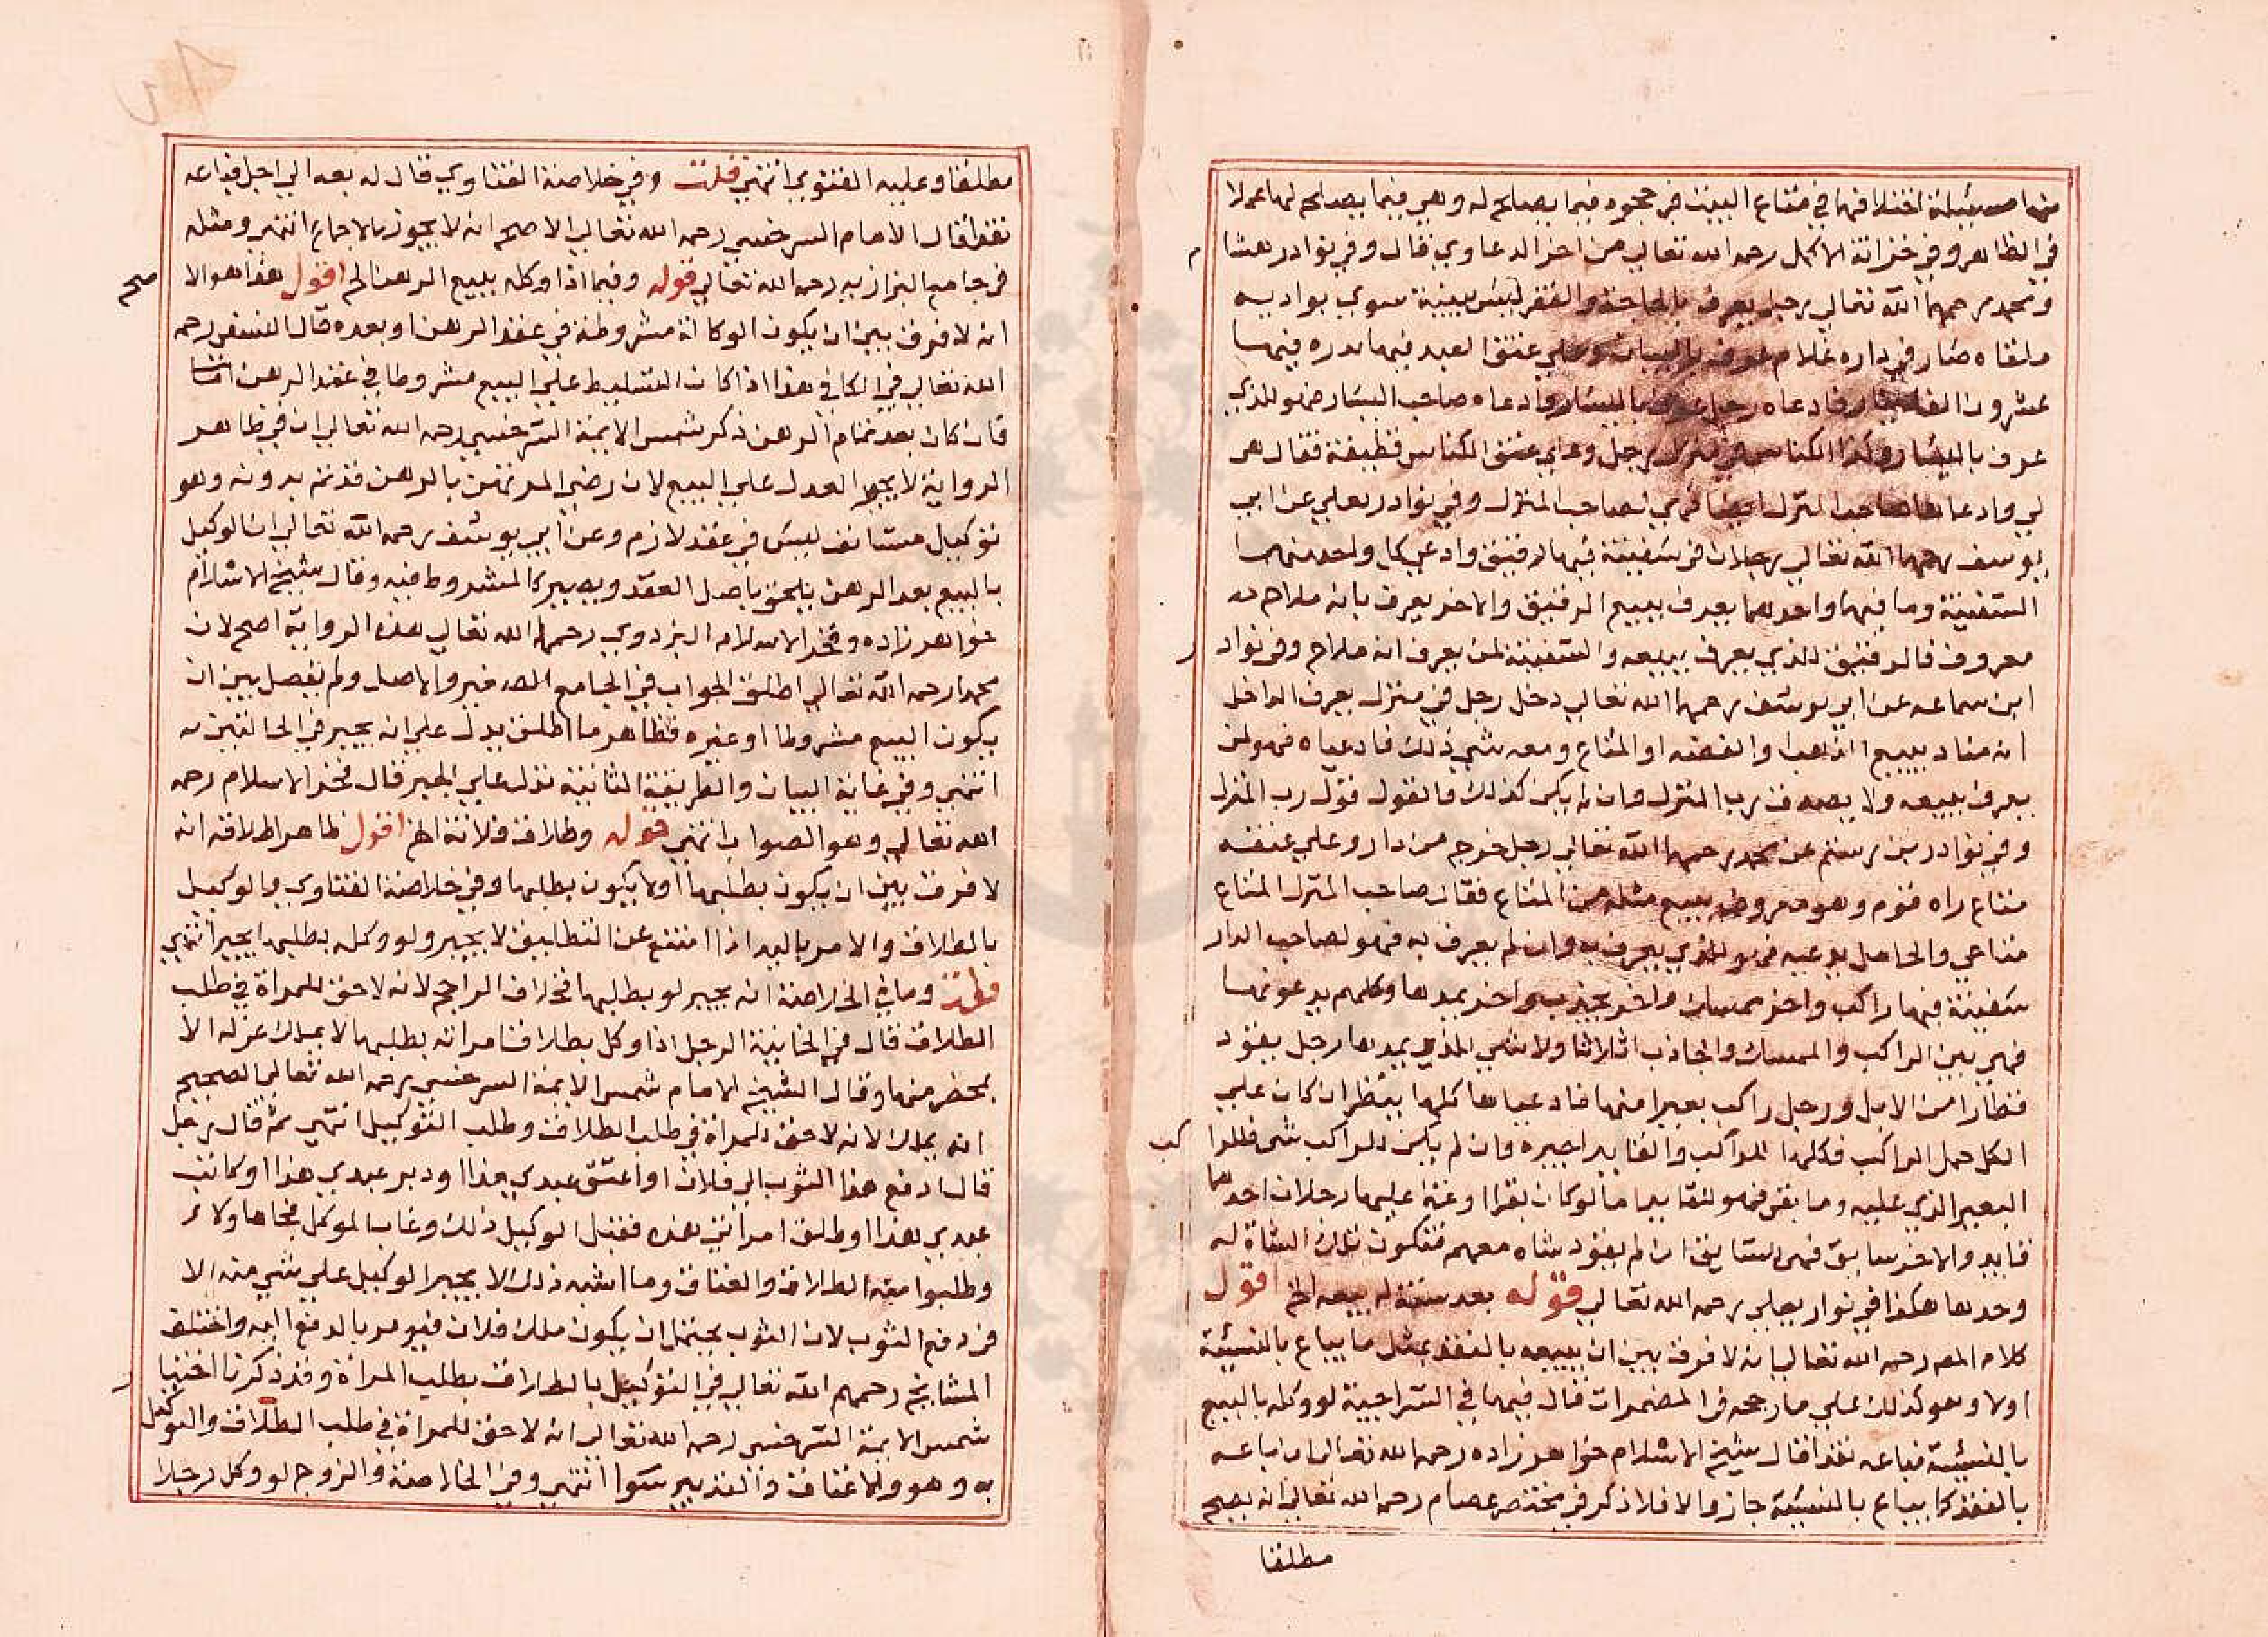 منها مسئلة اختلافهما في متاع البيت في حجره فيما يصلح له وهي فيما يصلح لها عملا
في الظاهر وفي خزانة الاكمل رحمه الله تعالى من اخر الدعاوي قال وفي نوادر هشام
ومحمد رحمهما الله تعالى رجل يعرف بالحاجة والفقر ليس ببيته سوى بوادية
ملقاه صار في داره غلام وعلى عنق العبد فيها بدره فيها
عشرون الف دينار فادعاه رجل عرف باليسار وادعاه صاحب البيت فهو للذي
عرف باليسار وكذا كناس في منزل رجل وعلى عنق الكناس قطيفة فقال هي
لي وادعاها صاحب المنزل فهي لصاحب المنزل وفي نوادر يعلى عن ابي
يوسف رحمهما الله تعالى رجلان في سفينة فيها دقيق وادعى كل واحد منهما
السفينة وما فيها واحدهما يعرف ببيع الدقيق والاخر يعرف بانه ملاح
معروف فالدقيق للذي يعرف ببيعه والسفينة لمن يعرف انه ملاح وفي نوادر
ابن سماعه عن ابي يوسف رحمهما الله تعالى دخل رجل في منزل يعرف الداخل
انه مناد ببيع الذهب والفضة او المتاع ومعه شي ذلك فادعياه فهو لمن
يعرف ببيعه ولا يصدق رب المنزل وان لم يكن كذلك فالقول قول رب المنزل
وفي نوادر بن رستم عن محمد رحمهما الله تعالى رجل خرج من دار وعلى عنقه
متاع راه قوم وهو معروف ببيع مثله من المتاع فقال صاحب المنزل المتاع
متاعي والحامل يدعيه فهو للذي يعرف به وان لم يعرف به فهو لصاحب الدار
سفينة فيها راكب واخر ممسك واخر يجذب واخر يمدها وكلهم يدعونها
فهي بين الراكب والممسك والجاذب اثلاثا ولا شي للذي يمدها رجل يقود
قطارا من الابل ورجل راكب بعيرا منها فادعياها كلها ينظر ان كان على
الكل حمل الراكب فكلها للراكب والقايد اجيره وان لم يكن للراكب شي فللراكب
البعير الذي عليه وما بقي فهو للقايد ما لو كان بقرا او غنما عليها رجلان احدهما
قايد والاخر سايق فهي للسايق الا ان لم يقود شاه معهم فتكون تلك الشاة له
وحدها هكذا في نوادر يعلى رحمه الله تعالى قوله بعد سنة له بيعه الخ اقول
كلام المص رحمه الله تعالى بانه لا فرق بين ان يبيعه بالنقد بمثل ما يباع بالنسيئة
اولا وهو كذلك على ما رجحه في المضمرات قال فيها في السراجية لو وكله بالبيع
بالنسيئة فباعه نقدا قال شيخ الاسلام خواهر زاده رحمه الله تعالى ان باعه
بالنقد كما يباع بالنسيئة جاز والا فلا ذكر في مختصر عصام رحمه الله تعالى انه يصح
مطلقا
مطلقا وعليه الفتوى انتهى قلت وفي خلاصة الفتاوي قال له بعه الى اجل فباعه
نقدا قال الامام السرخسي رحمه الله تعالى الاصح انه لا يجوز بالاجماع انتهى ومثله
في جامع البزازيه رحمه الله تعالى قوله وفيما اذا وكله ببيع الرهن الخ اقول هذا هو الا
صح
انه لا فرق بين ان يكون الوكالة مشروطة في عقد الرهن او بعده قال النسفي رحمه
الله تعالى في الكافي هذا اذا كان التسليط على البيع مشروطا في عقد الرهن اما
فان كان بعد تمام الرهن ذكر شمس الايمة السرخسي رحمه الله تعالى ان في ظاهر
الرواية لا يجبر العدل على البيع لان رضى المرتهن بالرهن قد تم بدونه وهو
توكيل مستانف ليس في عقد لازم وعن ابي يوسف رحمه الله تعالى ان الوكيل
بالبيع بعد الرهن يلحق باصل العقد ويصير كالمشروط فيه وقال شيخ الاسلام
خواهر زاده وفخر الاسلام البزدوي رحمهما الله تعالى هذه الرواية اصح لان
محمدا رحمه الله تعالى اطلق الجواب في الجامع الصغير والاصل ولم يفصل بين ان
يكون البيع مشروطا او غيره فظاهر ما اطلق يدل على انه يجبر في الحالتين
انتهى وفي غاية البيان والطريقة الثانية تدل على الجبر قال فخر الاسلام رحمه
الله تعالى وهو الصواب انتهى قوله وطلاق فلانة الخ اقول ظاهر اطلاقه انه
لا فرق بين ان يكون بطلبها او لا يكون بطلبها وفي خلاصة الفتاوي والوكيل
بالطلاق والامر باليد اذا امتنع عن التطليق لا يجبر ولو وكله بطلبها يجبر انتهى
قلت وما في الخلاصة انه يجبر لو بطلبها خلاف الراجح لانه لا حق للمراة في طلب
الطلاق قال في الخانية الرجل اذا وكل بطلاق امراته بطلبها لا يملك عزله الا
بمحضر منها وقال الشيخ الامام شمس الايمة السرخسي رحمه الله تعالى الصحيح
انه يملك لانه لا حق للمراة في طلب الطلاق وطلب التوكيل انتهى ثم قال رجل
قال ادفع هذا الثوب الى فلان او اعتق عبدي هذا او دبر عبدي هذا او كاتب
عبدي هذا او طلق امراتي هذه فقبل الوكيل ذلك وغاب الموكل فجاء هاولاء
وطلبوا منه الطلاق والعتاق وما اشبه ذلك لا يجبر الوكيل على شي منه الا
في دفع الثوب لان الثوب يحتمل ان يكون ملك فلان فيومر بالدفع اليه واختلف
المشايخ رحمهم الله تعالى في التوكيل بالطلاق بطلب المراة وقد ذكرنا اختيار
شمس الايمة السرخسي رحمه الله تعالى انه لا حق للمراة في طلب الطلاق والتوكيل
به وهو والاعتاق والتدبير سوا انتهى وفي الخلاصة والزوج لو وكل رجلا